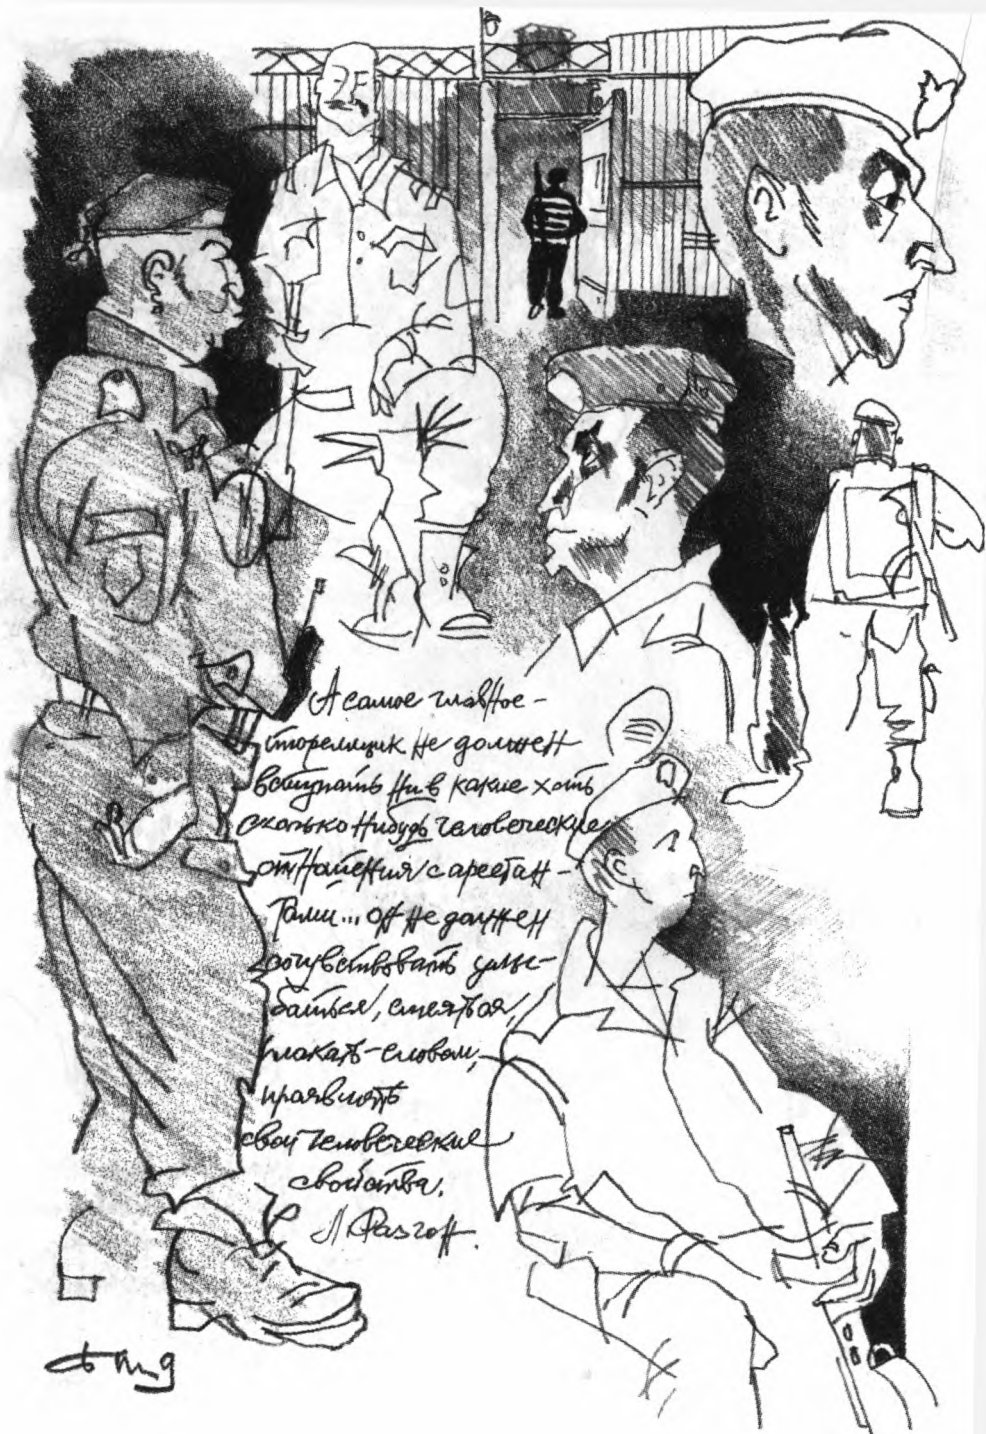 А самое главное –
тюремщик не должен
вступать ни в какие хоть
сколько нибудь человеческие
отношения с арестан–
тами... он не должен
сочувствовать улы–
баться, смеяться,
плакать – словом,
проявлять
свои человеческие
свойства.
Л. Разгон.